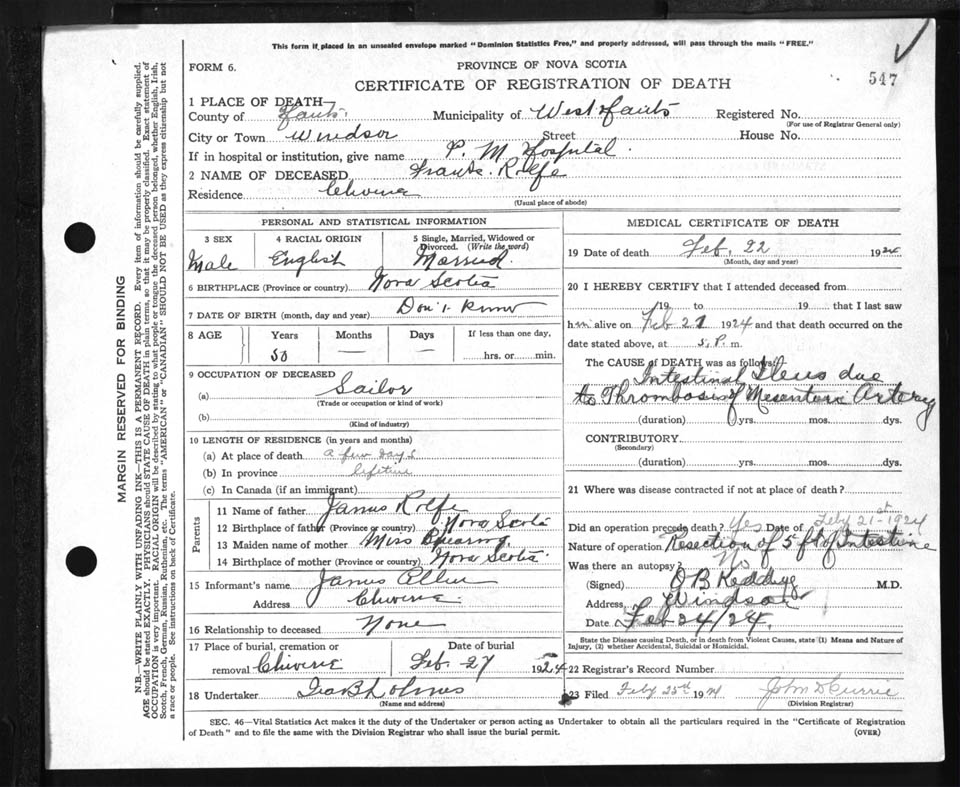 This form if placed in an unsealed envelope marked "Dominion Statistics Free," and properly addressed, will pass through the mails "FREE."
FORM 6.
PROVINCE OF NOVA SCOTIA
547
CERTIFICATE OF REGISTRATION OF DEATH
1 PLACE OF DEATH
County of Hants. Municipality of West Hants Registered No.
(For use of Registrar General only)
City or Town Windsor Street House No.
If in hospital or institution, give name P. M. Hospital.
2 NAME OF DECEASED Rolfe
Residence Chiverie
(Usual place of abode)
PERSONAL AND STATISTICAL INFORMATION
3 SEX 4 RACIAL ORIGIN 5 Single, Married, Widowed or Divorced. (Write the word)
Male English Married.
6 BIRTHPLACE (Province or country) Nova Scotia
7 DATE OF BIRTH (month, day and year) Don't know
8 AGE Years Months Days If less than one day,
50 — — hrs. or min.
9 OCCUPATION OF DECEASED
(a) Sailor
(Trade or occupation or kind of work)
(b)
(Kind of industry)
10 LENGTH OF RESIDENCE (in years and months)
(a) At place of death a few days
(b) In province lifetime
(c) In Canada (if an immigrant)
Parents
11 Name of father James Rolfe
12 Birthplace of father (Province or country) Nova Scotia
13 Maiden name of mother Miss
14 Birthplace of mother (Province or country) Nova Scotia
15 Informant's name James
Address Chiverie
16 Relationship to deceased None
17 Place of burial, cremation or removal Chiverie
Date of burial Feb - 27 1924
18 Undertaker Ira B Holmes
(Name and address)
MEDICAL CERTIFICATE OF DEATH
19 Date of death Feb. 22 1924
(Month, day and year)
20 I HEREBY CERTIFY that I attended deceased from
19 to 19 that I last saw
him alive on Feb 21 1924 and that death occurred on
date stated above, at 5. P. m.
The CAUSE OF DEATH was as follows:
Intestinal Ileus due
to Thrombosis of Mesenteric Artery
(duration) yrs. mos. dys.
CONTRIBUTORY
(Secondary)
(duration) yrs. mos. dys.
21 Where was disease contracted if not at place of death?
Did an operation precede death? Yes Date of Feby 21st - 1924
Nature of operation Resection of 5 ft of Intestine
Was there an autopsy? No
(Signed) O B Keddy M.D.
Address Windsor
Date Feb 24/24.
State the Disease causing Death, or in death from Violent Causes, state (1) Means and Nature of Injury, (2) whether Accidental, Suicidal or Homicidal.
22 Registrar's Record Number
23 Filed Feby 25th 1924 John D Currie
(Division Registrar)
SEC. 46—Vital Statistics Act makes it the duty of the Undertaker or person acting as Undertaker to obtain all the particulars required in the "Certificate of Registration
of Death" and to file the same with the Division Registrar who shall issue the burial permit.
(OVER)
MARGIN RESERVED FOR BINDING
N.B.—WRITE PLAINLY WITH UNFADING INK—THIS IS A PERMANENT RECORD. Every item of information should be carefully supplied.
AGE should be stated EXACTLY. PHYSICIANS should STATE CAUSE OF DEATH in plain terms, so that it may be properly classified. Exact statement of
OCCUPATION is very important. RACIAL ORIGIN will be described by stating to what people or tongue the deceased person belonged, whether English, Irish,
Scotch, French, German, Russian, Ruthenian, etc. The terms "AMERICAN" or "CANADIAN" SHOULD NOT BE USED as they express citizenship but not
a race or people. See instructions on back of Certificate.